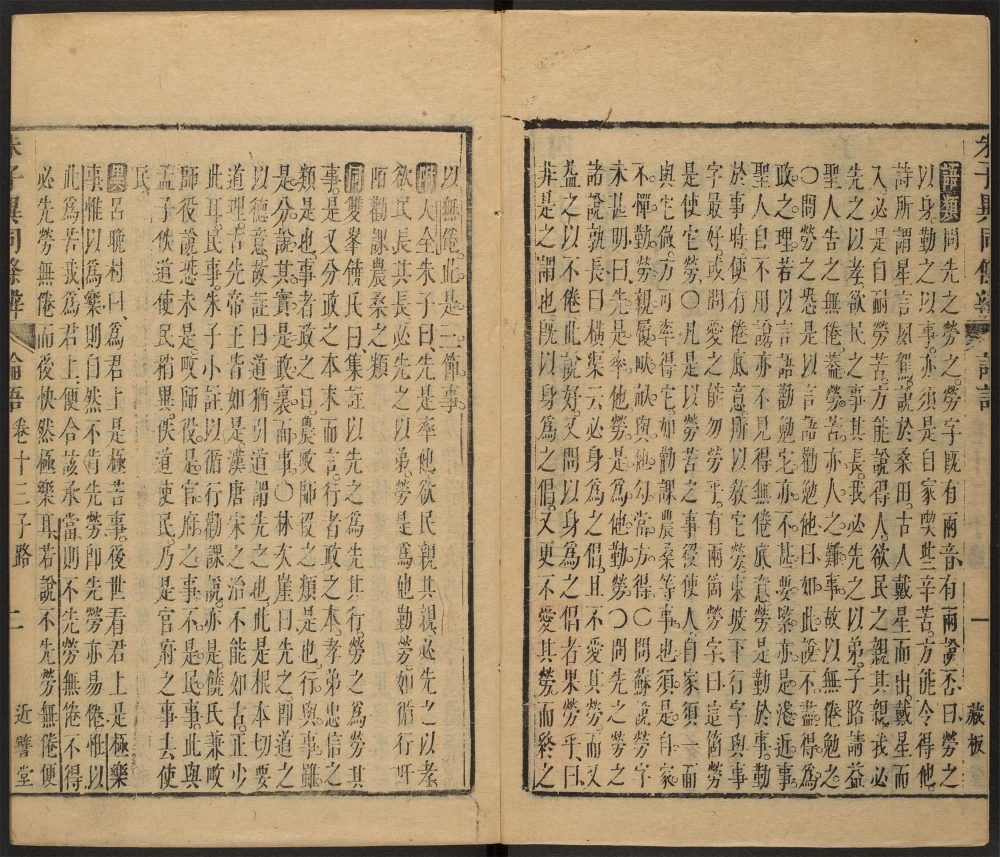 朱子異同條辨
語類問先之勞之勞字既有兩音有兩說否曰勞之
以身勤之以事亦須是自家喫些辛苦方能令得他
詩所謂星言夙駕說於桑田古人戴星而出戴星而
入必是自耐勞苦方能說得人欲民之親其親我必
先之以孝欲民之事其長我必先之以弟子路請益
聖人告之無倦蓋勞人之難事故以無倦勉之
○問勞之恐是以言語勸勉他曰如此說不盡得為
政之理若以言語勸勉它亦不甚要緊亦是淺近事
聖人自不用說亦不見得無倦底意勞是勤於事勤
於事時便有倦底意所以教它勞東坡下行字與事
字最好或問愛之能勿勞乎有兩箇勞字曰這箇勞
是使它勞○凡是以勞苦之事役使人自家須一面
與它做方可率得它如勸課農桑等事也須是自家
不憚勤勞親履畎畝與他勾當方得○問蘇說勞字
未甚明曰先是率他勞是為他勤勞○問先之勞之
諸說孰長曰橫渠云必身為之倡且不愛其勞而又
益之以不倦此說好又問以身為之倡者果勞乎曰
非是之謂也既以身為之倡又更不愛其勞而終之
一
藏板
以無倦此是三節事
附大全朱子曰先是率他欲民親其親必先之以孝
欲民長其長必先之以弟勞是為他勤勞如循行阡
陌勸課農桑之類
同雙峯饒氏曰集註以先之為先其行勞之為勞其
事是又分政之本末而言行者政之本孝弟忠信之
類是也事者政之目農畋師役之類是也行與事雖
是分說其實是政裏面事○林次崖曰先之即道之
以德意故註曰道猶引道謂先之也此是根本切要
道理古先帝王皆如是漢唐宋之治不能如古正少
此耳民事朱子小註以循行勸課說亦是饒氏兼畋
師役說恐未是畋師役是官府之事不是民事此與
孟子佚道使民稍異佚道使民乃是官府之事去使
民
異呂晚村曰為君上是極苦事後世看君上是極樂
事惟以為樂則自然不肯先勞即先勞亦易倦惟以
此為苦我為君上便合該承當則不先勞無倦不得
必先勞無倦而後快然極樂耳若說不先勞無倦便
朱子異同條辨
論語
卷十三子路
二
近譬堂